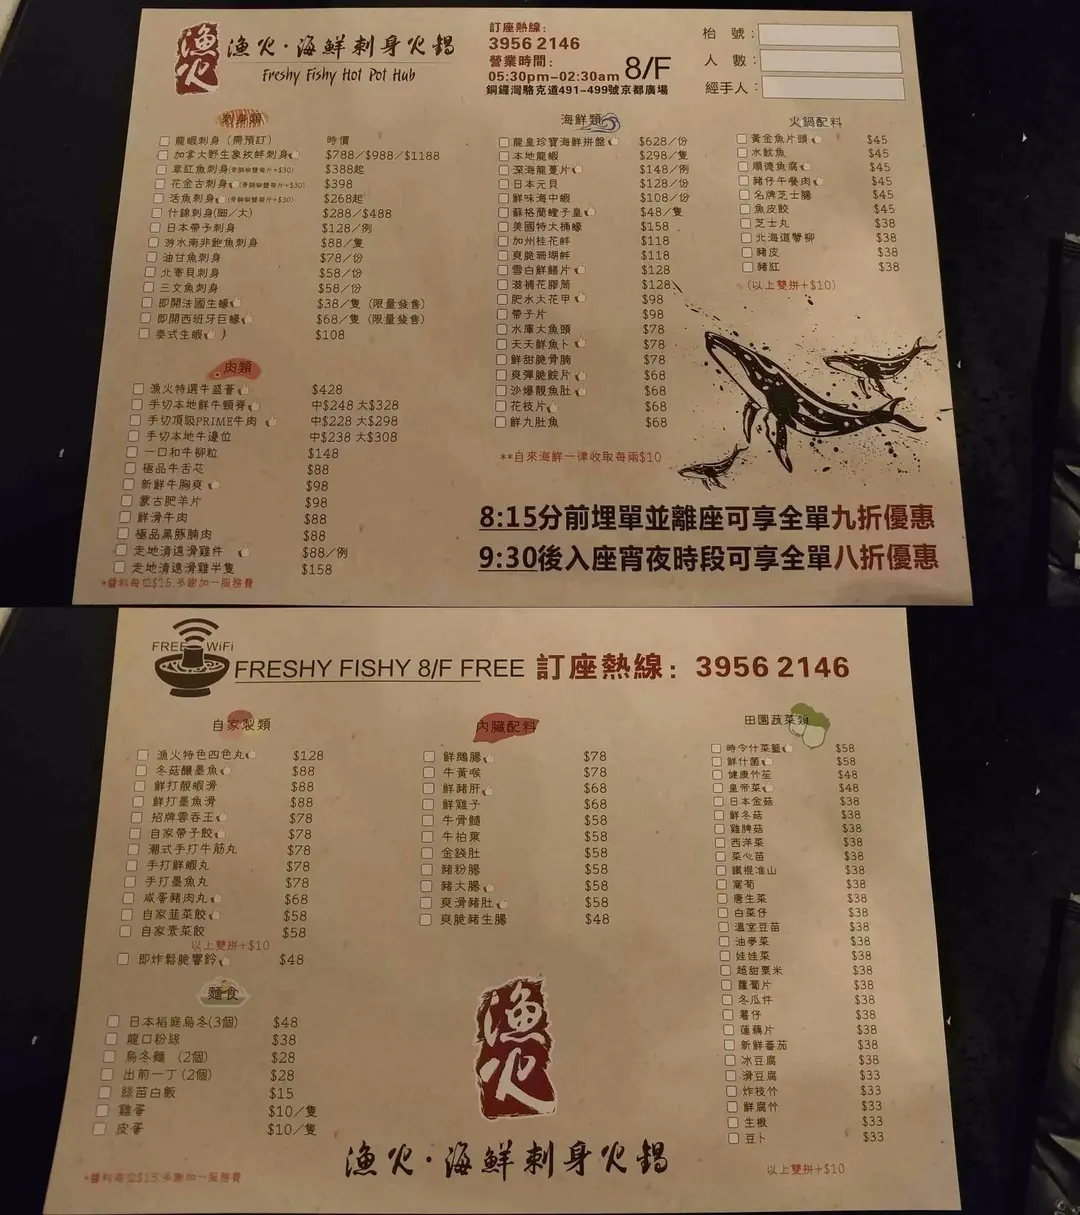 漁火
漁火·海鮮刺身火鍋
Freshy Fishy Hot Pot Hub
訂座熱線：
3956 2146
營業時間：
05:30pm-02:30am 8/F
銅鑼灣駱克道491-499號京都廣場
枱 號：
人 數：
經手人：
刺身類
龍蝦刺身（需預訂） 時價
加拿大野生象拔蚌刺身 $788/$988/$1188
章紅魚刺身 $388起
花金古刺身 $398
活魚刺身 $268起
什錦刺身(細/大) $288/$488
日本帶子刺身 $128/例
游水南非鮑魚刺身 $88/隻
油甘魚刺身 $78/份
北寄貝刺身 $58/份
三文魚刺身 $58/份
即開法國生蠔 $38/隻（限量發售）
即開西班牙巨蠔 $68/隻（限量發售）
泰式生蝦 ) $108
肉類
漁火特選牛盛薈 $428
手切本地鮮牛頸脊 中$248 大$328
手切頂級PRIME牛肉 中$228 大$298
手切本地牛邊位 中$238 大$308
一口和牛柳粒 $148
極品牛舌芯 $88
新鮮牛胸爽 $98
蒙古肥羊片 $98
鮮滑牛肉 $88
極品黑豚腩肉 $88
走地清遠滑雞件 $88/例
走地清遠滑雞半隻 $158
*醬料每位$15,多謝加一服務費
海鮮類
龍皇珍寶海鮮拼盤 $628/份
本地龍蝦 $298/隻
深海龍躉片 $148/例
日本元貝 $128/份
鮮味海中蝦 $108/份
蘇格蘭蟶子皇 $48/隻
美國特大桶蠔 $158
加州桂花蚌 $118
爽脆珊瑚蚌 $118
雪白鮮鱔片 $128
滋補花膠筒 $128
肥水大花甲 $98
帶子片 $98
水庫大魚頭 $78
天天鮮魚卜 $78
鮮甜脆骨腩 $78
爽彈脆鯇片 $68
沙爆靚魚肚 $68
花枝片 $68
鮮九肚魚 $68
**自來海鮮一律收取每兩$10
火鍋配料
黃金魚片頭 $45
水魷魚 $45
順德魚腐 $45
豬仔午餐肉 $45
名牌芝士腸 $45
魚皮餃 $45
芝士丸 $38
北海道蟹柳 $38
豬皮 $38
豬紅 $38
(以上雙拼+$10)
8:15分前埋單並離座可享全單九折優惠
9:30後入座宵夜時段可享全單八折優惠
FREE WiFi
FRESHY FISHY 8/F FREE 訂座熱線：3956 2146
自家製類
漁火特色四色丸 $128
冬菇釀墨魚 $88
鮮打靚蝦滑 $88
鮮打墨魚滑 $88
招牌雲吞王 $78
自家帶子餃 $78
潮式手打牛筋丸 $78
手打鮮蝦丸 $78
手打墨魚丸 $78
咸蛋豬肉丸 $68
自家韮菜餃 $58
自家素菜餃 $58
以上雙拼+$10
即炸鬆脆響鈴 $48
麵食
日本稻庭烏冬(3個) $48
龍口粉絲 $38
烏冬麵 (2個) $28
出前一丁(2個) $28
絲苗白飯 $15
雞蛋 $10/隻
皮蛋 $10/隻
*醬料每位$15,多謝加一服務費
內臟配料
鮮鵝腸 $78
牛黃喉 $78
鮮豬肝 $68
鮮雞子 $68
牛骨髓 $58
牛柏葉 $58
金錢肚 $58
豬粉腸 $58
豬大腸 $58
爽滑豬肚 $58
爽脆豬生腸 $48
田園蔬菜類
時令什菜籃 $58
鮮什菌 $58
健康竹笙 $48
皇帝菜 $48
日本金菇 $38
鮮冬菇 $38
雞脾菇 $38
西洋菜 $38
菜心苗 $38
鐵棍淮山 $38
窩筍 $38
唐生菜 $38
白菜仔 $38
溫室豆苗 $38
油麥菜 $38
娃娃菜 $38
超甜粟米 $38
蘿蔔片 $38
冬瓜件 $38
薯仔 $38
蓮藕片 $38
新鮮蕃茄 $38
冰豆腐 $38
滑豆腐 $33
炸枝竹 $33
鮮腐竹 $33
生根 $33
豆卜 $33
以上雙拼+$10
漁火
漁火·海鮮刺身火鍋